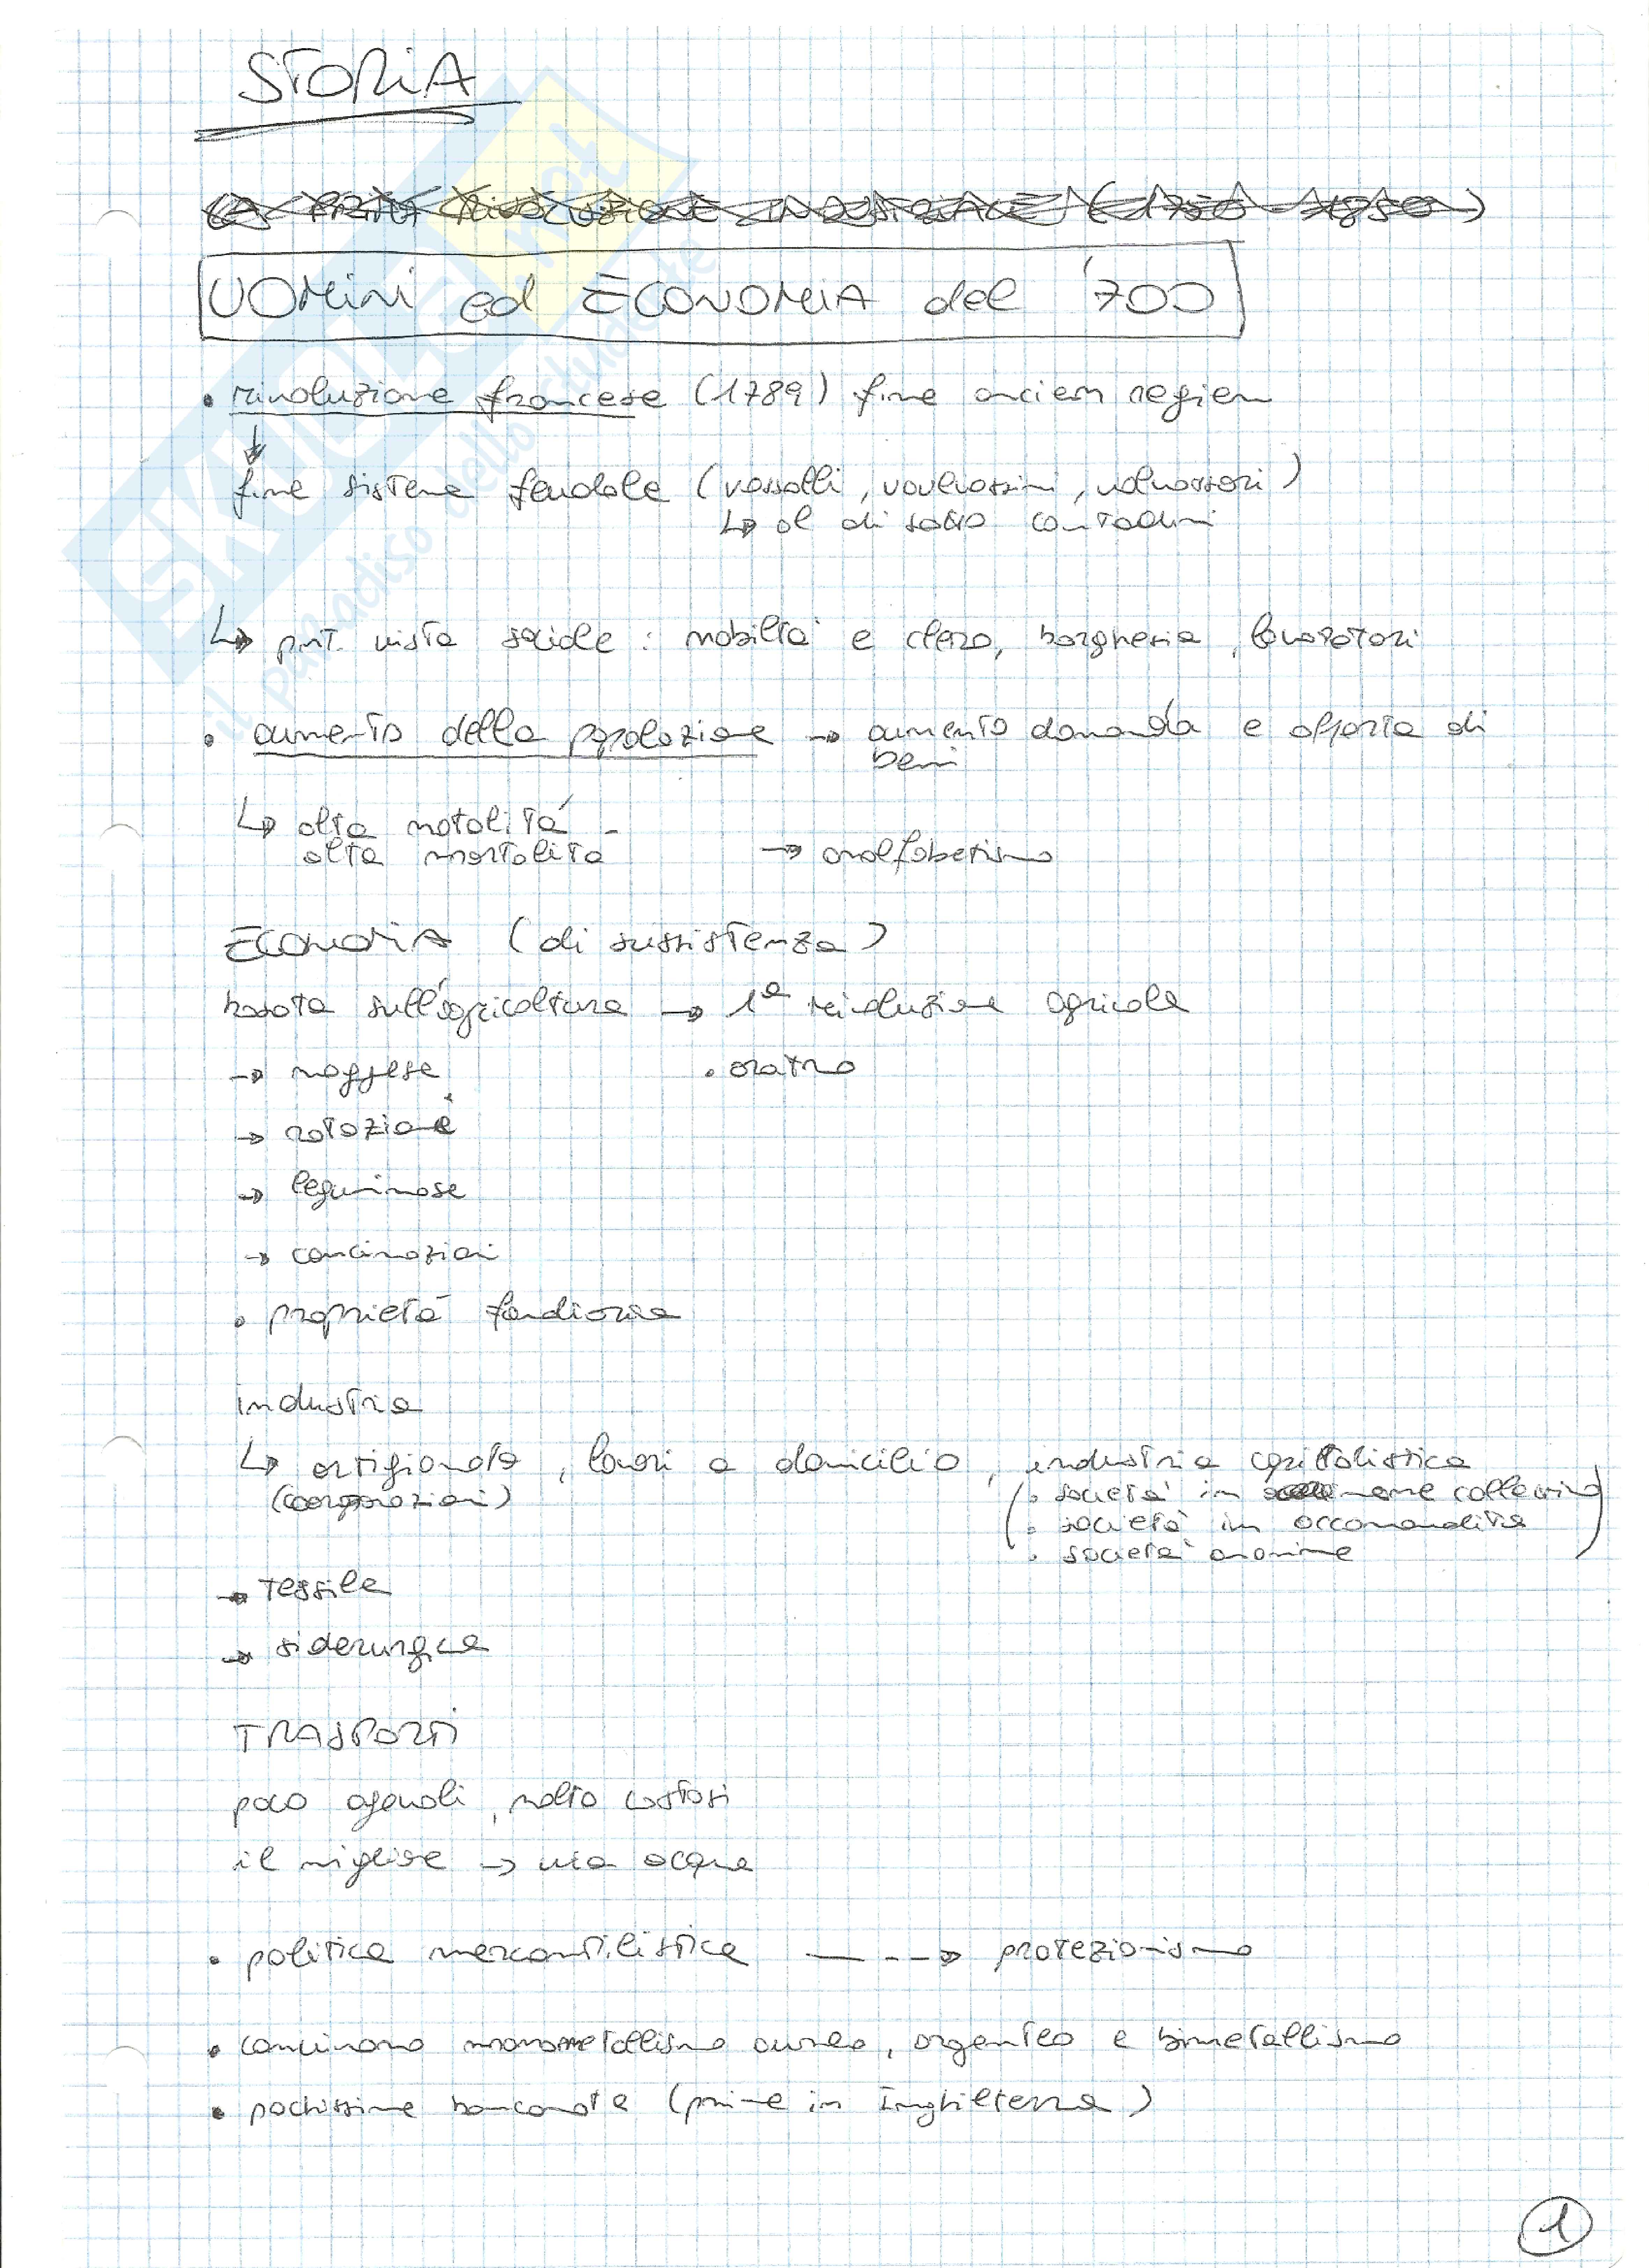 STORIA
LA PRIMA RIVOLUZIONE INDUSTRIALE (1750 - 1850)
UOMINI ed ECONOMIA del '700
• rivoluzione francese (1789) fine anciem regiem
↓
fine sistema feudale (vassalli, vavassori)
↳ al di sotto contadini
↳ pnt. vista sociale : nobiltà e clero, borghesia, lavoratori
• aumento della popolazione → aumento domanda e offerta di
beni
↳ alta natalità -
alta mortalità → analfabetismo
ECONOMIA (di sussistenza)
basata sull'agricoltura → 1ª rivoluzione agricola
→ maggese • aratro
→ rotazione
→ leguminose
→ concimazioni
• proprietà fondiaria
industria
↳ artigianato, lavori a domicilio, industria capitalistica
(corporazioni) (• società in nome collettivo
• società in accomandita
• società anonime)
→ tessile
→ siderurgica
TRASPORTI
poco agevoli, molto costosi
il migliore → via acqua
• politica mercantilistica ---→ protezionismo
• monometallismo aureo, argenteo e bimetallismo
• pochissime banconote (prime in Inghilterra)
1
SKUOLA.net
il paradiso dello studente